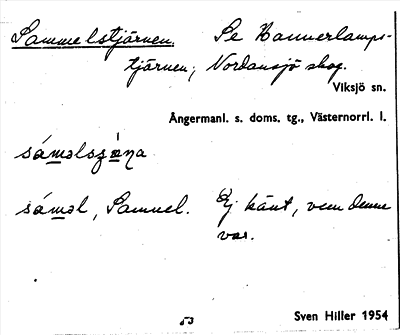 Sammelstjärnen. Se Hannerlamps-
tjärnen, Nordansjö skog.
Viksjö sn.
Ångermanl. s. doms. tg., Västernorrl. l.
sáməlsʒə̀na
sáməl, Samuel. Ej känt, vem denne
var.
53 Sven Hiller 1954